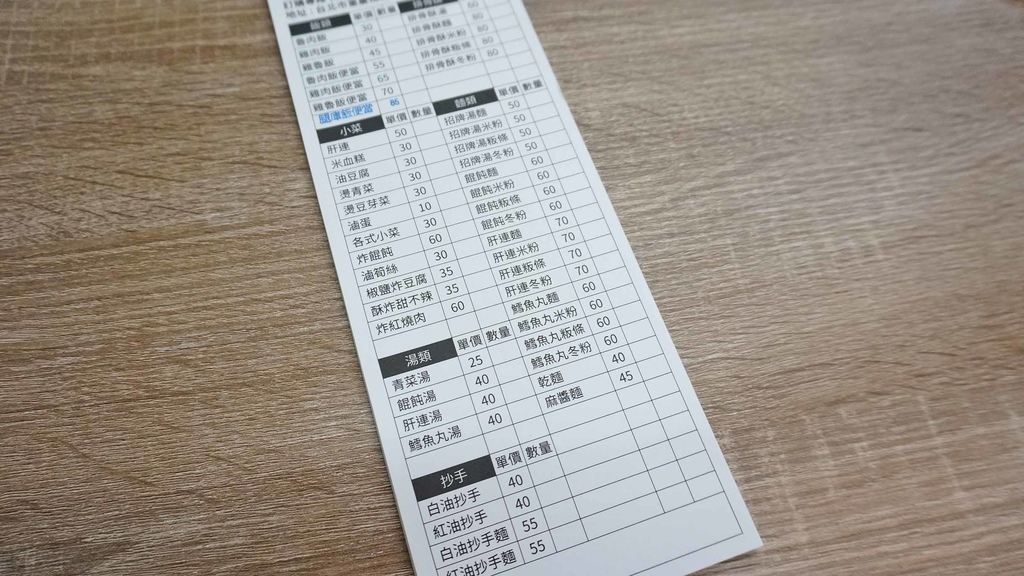 單價 數量
魯肉飯 30
雞肉飯 40
雞魯飯 45
魯肉飯便當 55
雞肉飯便當 65
雞魯飯便當 70
腿庫飯便當
排骨酥湯 60
排骨酥麵 80
排骨酥米粉 80
排骨酥粄條 80
排骨酥冬粉 80
小菜 單價 數量
肝連 50
米血糕 30
油豆腐 30
燙青菜 30
燙豆芽菜 30
滷蛋 10
各式小菜 30
炸餛飩 60
滷筍絲 30
椒鹽炸豆腐 35
酥炸甜不辣 35
炸紅燒肉 60
麵類 單價 數量
招牌湯麵 50
招牌湯米粉 50
招牌湯粄條 50
招牌湯冬粉 50
餛飩麵 60
餛飩米粉 60
餛飩粄條 60
餛飩冬粉 60
肝連麵 70
肝連米粉 70
肝連粄條 70
肝連冬粉 70
鱈魚丸麵 60
鱈魚丸米粉 60
鱈魚丸粄條 60
鱈魚丸冬粉 60
乾麵 40
麻醬麵 45
湯類 單價 數量
青菜湯 25
餛飩湯 40
肝連湯 40
鱈魚丸湯 40
抄手 單價 數量
白油抄手 40
紅油抄手 40
白油抄手麵 55
紅油抄手麵 55